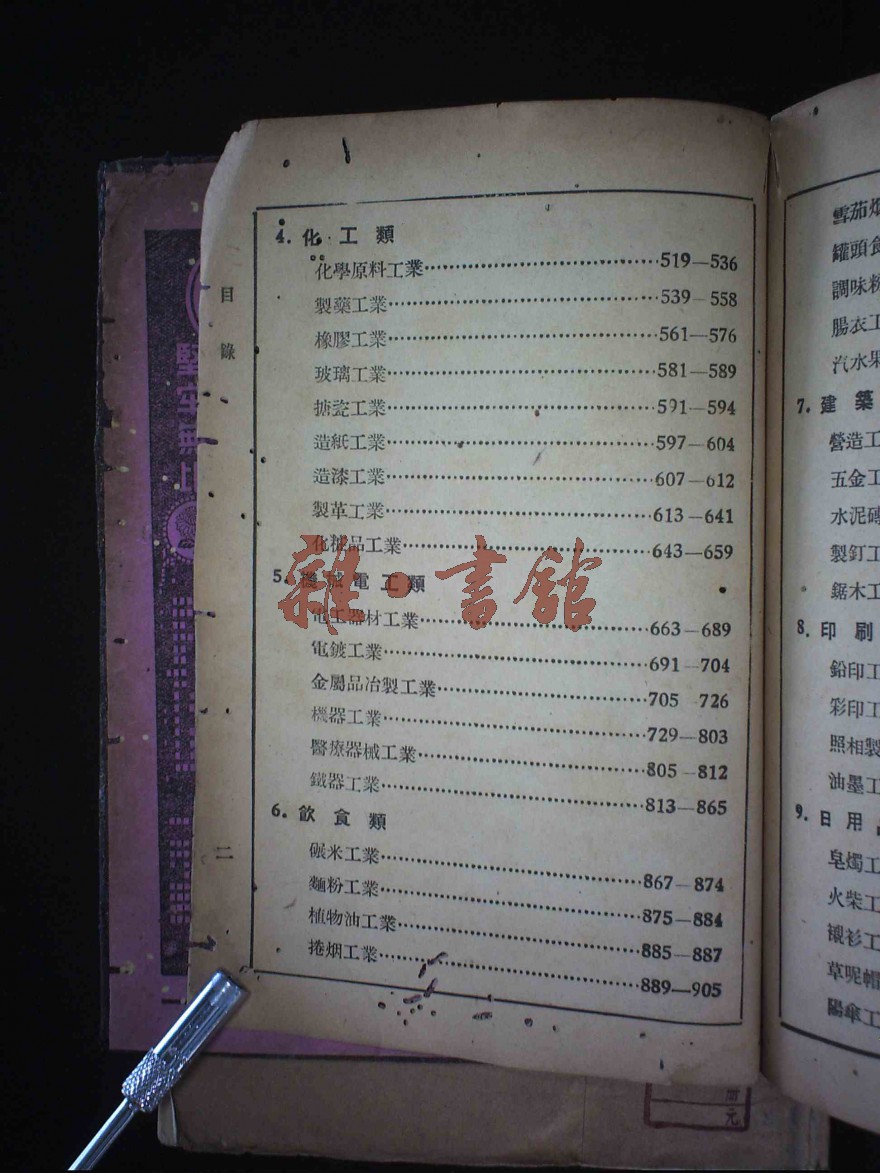 目錄
4. 化工類
化學原料工業 519—536
製藥工業 539—558
橡膠工業 561—576
玻璃工業 581—589
搪瓷工業 591—594
造紙工業 597—604
造漆工業 607—612
製革工業 613—641
化粧品工業 643—659
5. 電工類
電工器材工業 663—689
電鍍工業 691—704
金屬品冶製工業 705 726
機器工業 729—803
醫療器械工業 805—812
鐵器工業 813—865
6. 飲食類
碾米工業 867—874
麵粉工業 875—884
植物油工業 885—887
捲烟工業 889—905
二
雜·書館
雪茄烟
罐頭食
調味粉
腸衣工
汽水果
7. 建築
營造工
五金工
水泥磚
製釘工
鋸木工
8. 印刷
鉛印工
彩印工
照相製
油墨工
9. 日用
皂燭工
火柴工
襯衫工
草呢帽
陽傘工
元